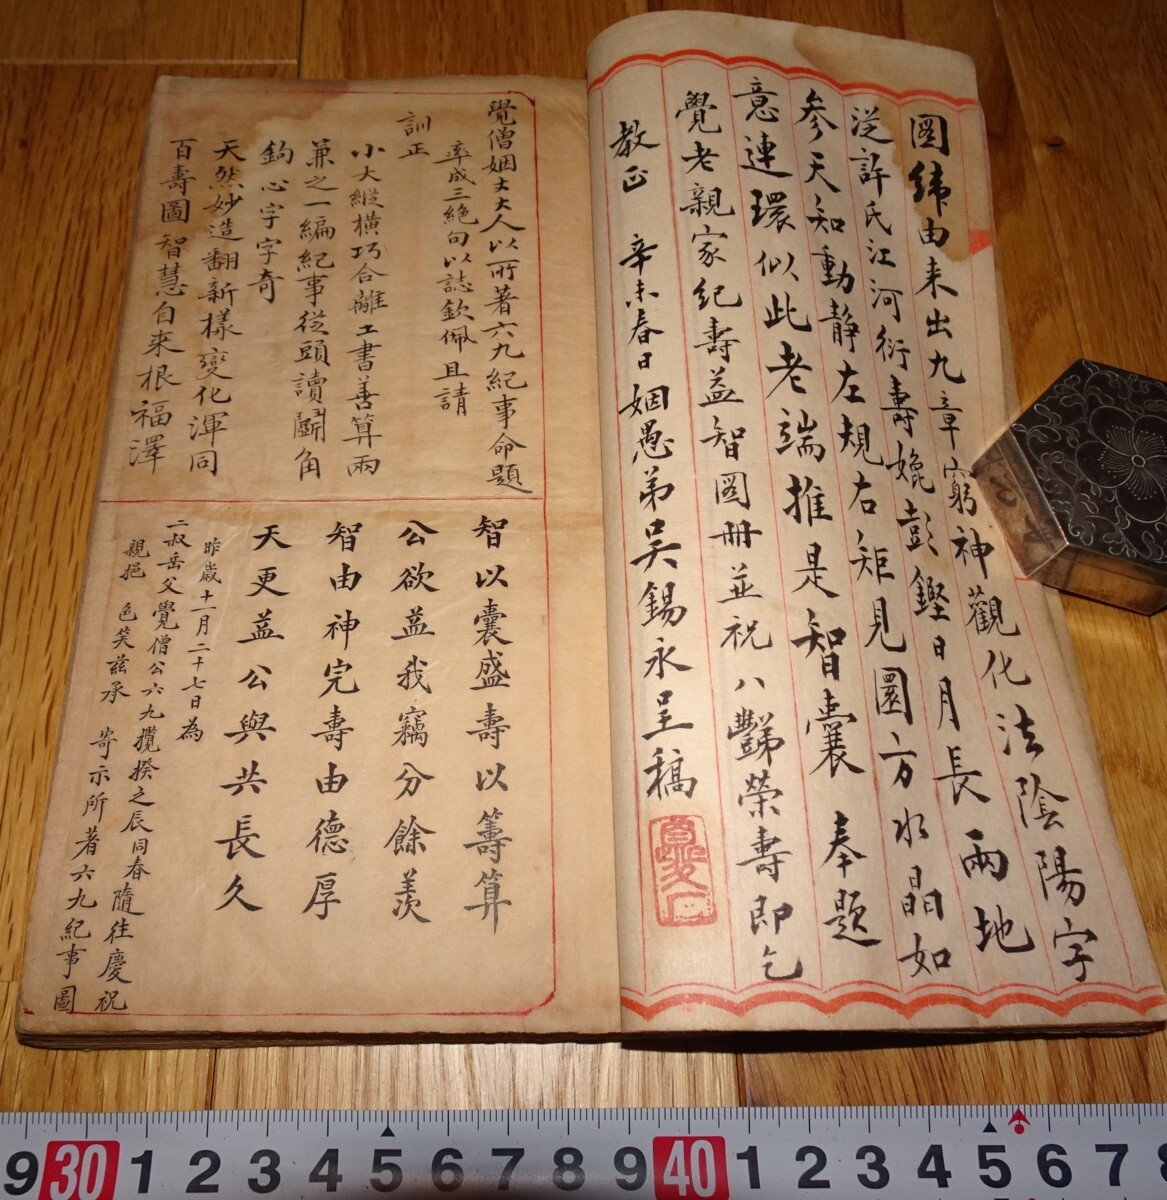 圖緯由来出九章窮神觀化法陰陽字
从許氏江河衍壽媲彭鏗日月長兩地
参天知動靜左規右矩見圜方水晶如
意連環似此老端推是智囊 奉題
覺老親家紀壽益智図冊並祝八豑榮壽即乞
教正 辛未春日姻愚弟吴錫永呈稿
覺僧姻丈大人以所著六九紀事命題
率成三絶句以誌欽佩且請
訓正
小大縱橫巧合離工書善算兩
兼之一編紀事從頭讀鬭角
鉤心字字奇
天然妙造翻新樣變化渾同
百壽圖智慧自来根福澤
智以囊盛壽以籌算
公欲益我竊分餘羡
智由神完壽由德厚
天更益公與共長久
昨歲十一月二十七日為
二叔岳父覺僧公六九攬揆之辰同春隨往慶祝
親挹 色笑兹承 寄示所著六九紀事圖
9 30 1 2 3 4 5 6 7 8 9 40 1 2 3 4 5 6 7 8